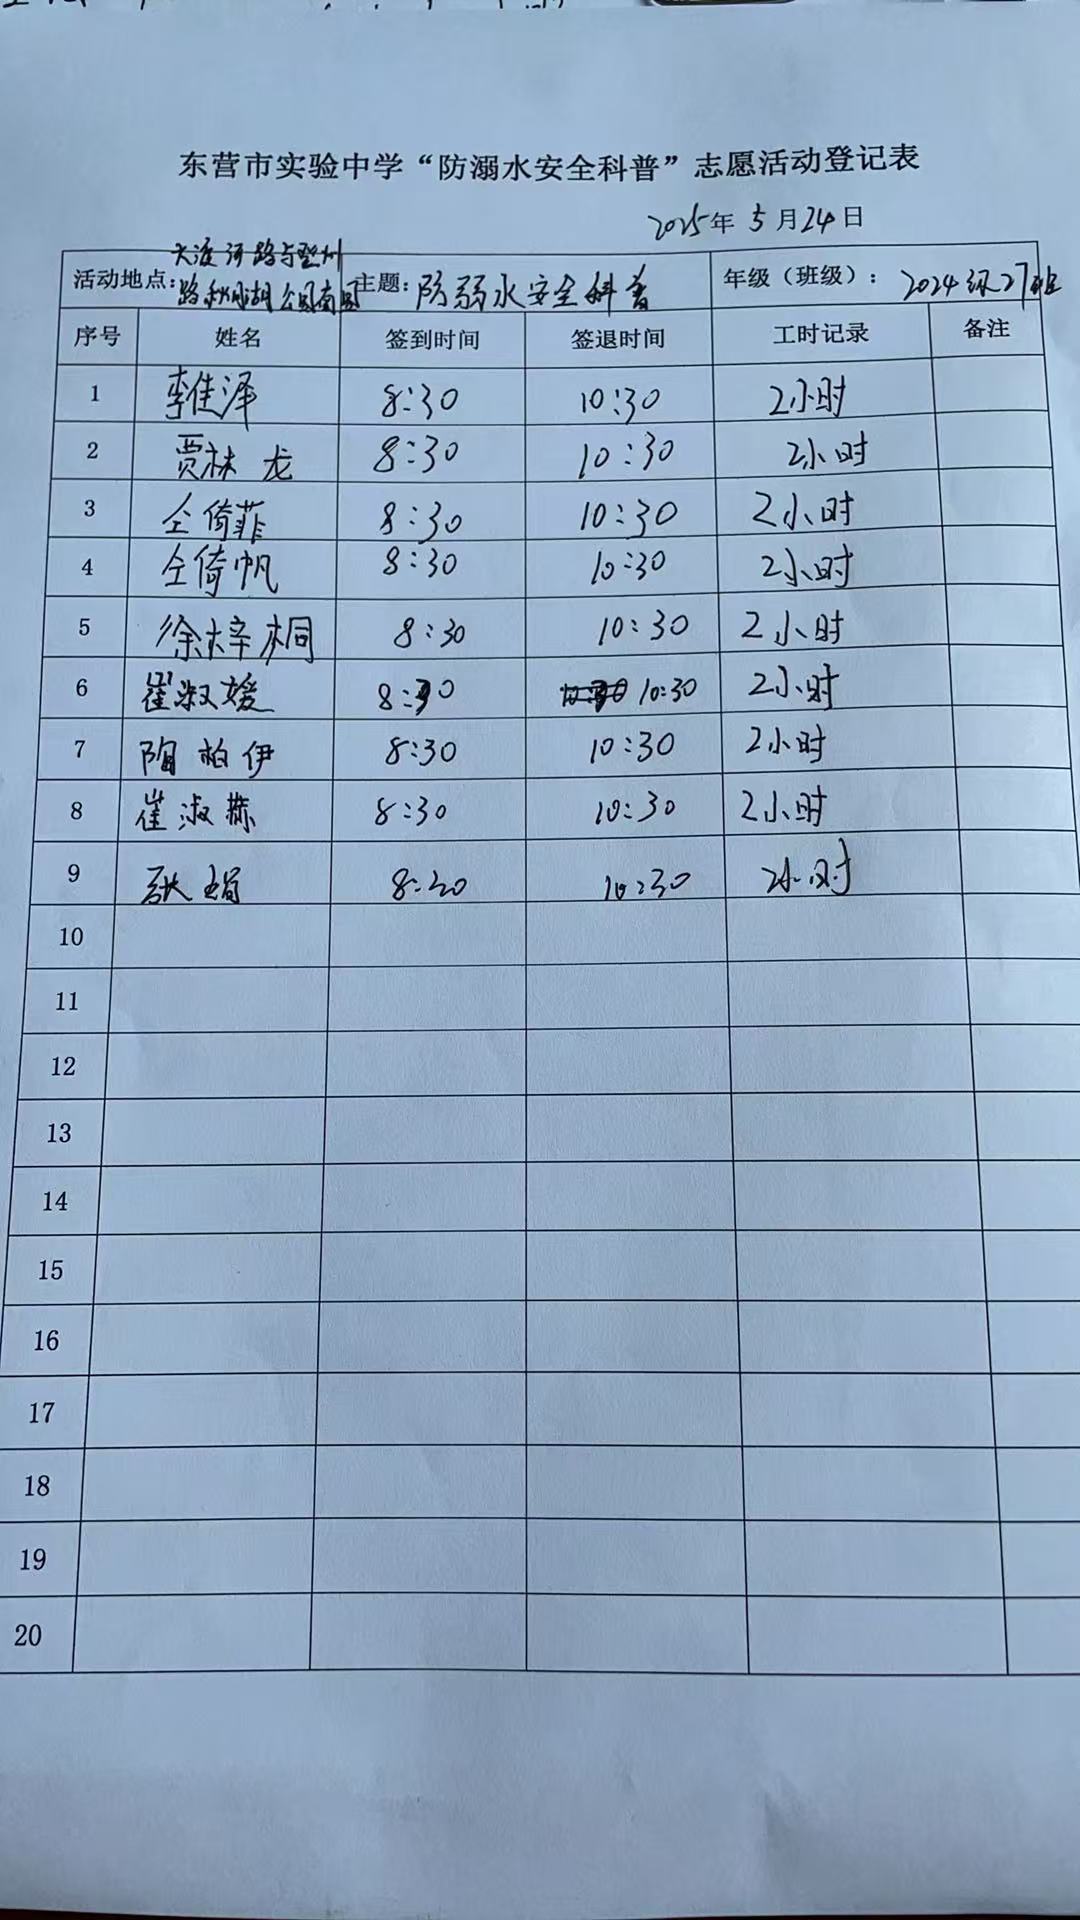 东营市实验中学“防溺水安全科普”志愿活动登记表
2025年 5月24日
活动地点：大渡河路与登州路秋月湖公园南门 主题：防弱水安全科普 年级（班级）：2024级27班
序号 姓名 签到时间 签退时间 工时记录 备注
1 李佳泽 8:30 10:30 2小时
2 贾林龙 8:30 10:30 2小时
3 仝倚菲 8:30 10:30 2小时
4 仝倚帆 8:30 10:30 2小时
5 徐梓桐 8:30 10:30 2小时
6 崔淑媛 8:30 10:30 2小时
7 陶柏伊 8:30 10:30 2小时
8 崔淑栋 8:30 10:30 2小时
9 8:30 10:30 2小时
10
11
12
13
14
15
16
17
18
19
20